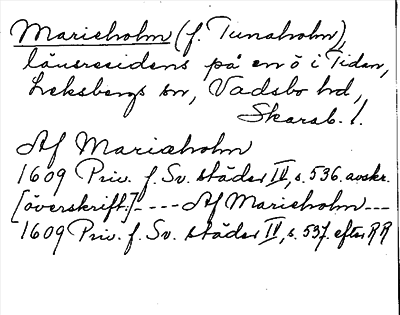 Marieholm (f. Tunaholm),
länsresidens på en ö i Tidan,
Leksbergs sn, Vadsbo hd,
Skarab. l.
Af Mariæholm
1609 Priv. f. Sv. städer IV, s. 536. avskr.
[överskrift:] ---- Af Marieholm ---
1609 Priv. f. Sv. städer IV, s. 537. efter RR